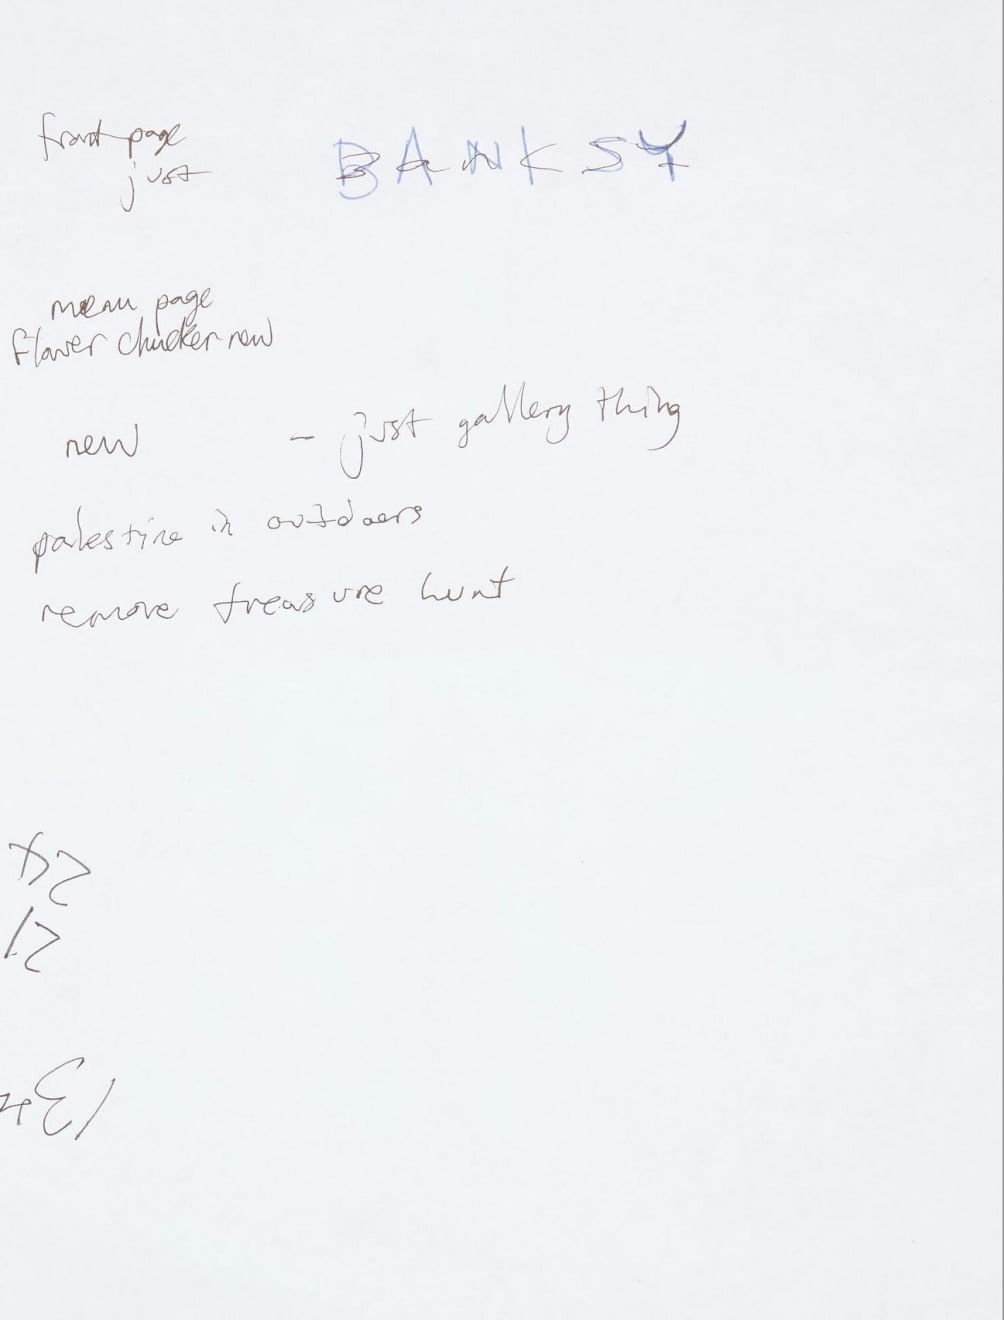 front page
just
BANKSY
menu page
flower chucker now
new - just gallery thing
palestine in outdoors
remove treasure hunt
24
21
134